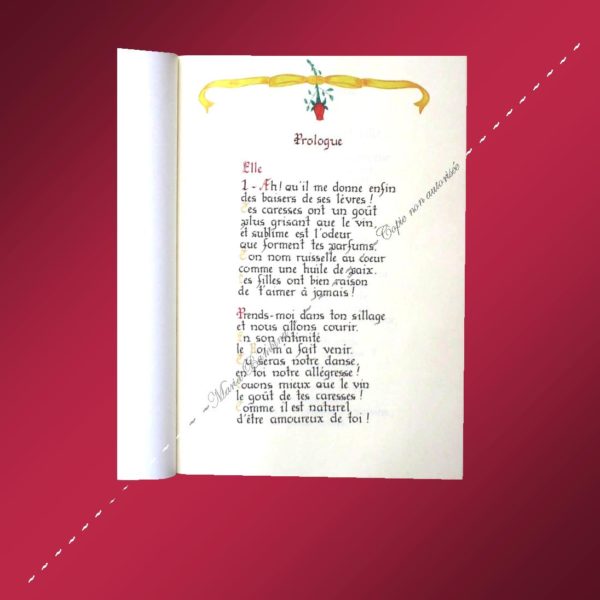 Prologue
Elle
1 - Ah! qu'il me donne enfin
des baisers de ses lèvres !
Tes caresses ont un goût
plus grisant que le vin,
et sublime est l'odeur
que forment tes parfums.
Ton nom ruisselle au coeur
comme une huile de paix.
Les filles ont bien raison
de t'aimer à jamais !
Prends-moi dans ton sillage
et nous allons courir.
En son intimité
le Roi m'a fait venir.
Tu seras notre danse,
en toi notre allégresse !
Louons mieux que le vin
le goût de tes caresses !
Comme il est naturel
d'être amoureux de toi !
Copie non autorisée